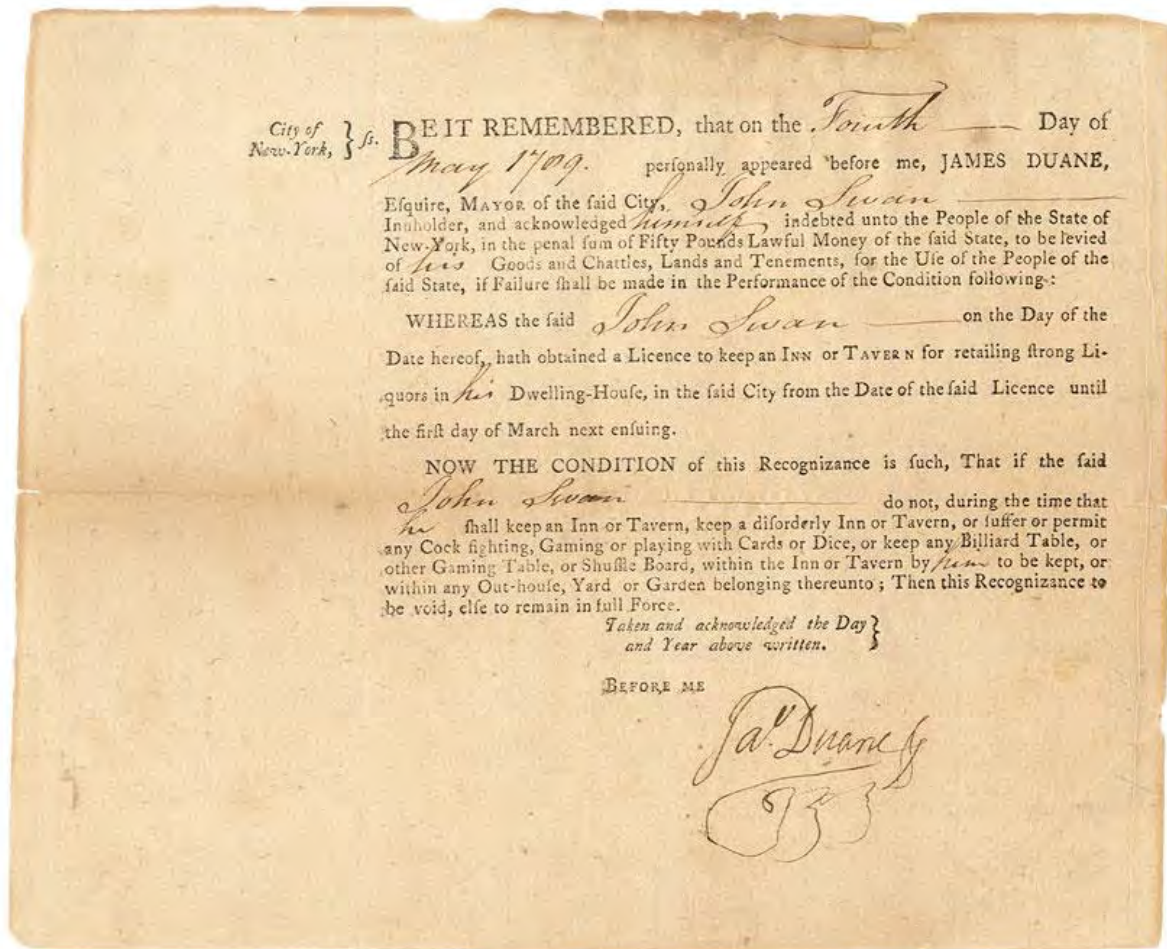 City of
New-York, } ſs.
BE IT REMEMBERED, that on the Fourth — Day of
May 1789. perſonally appeared before me, JAMES DUANE,
Eſquire, MAYOR of the ſaid City, John Swan —
Innholder, and acknowledged himself indebted unto the People of the State of
New-York, in the penal ſum of Fifty Pounds Lawful Money of the ſaid State, to be levied
of his Goods and Chattles, Lands and Tenements, for the Uſe of the People of the
ſaid State, if Failure ſhall be made in the Performance of the Condition following:
WHEREAS the ſaid John Swan — on the Day of the
Date hereof, hath obtained a Licence to keep an INN or TAVERN for retailing ſtrong Li-
quors in his Dwelling-Houſe, in the ſaid City from the Date of the ſaid Licence until
the firſt day of March next enſuing.
NOW THE CONDITION of this Recognizance is ſuch, That if the ſaid
John Swan — do not, during the time that
he ſhall keep an Inn or Tavern, keep a diſorderly Inn or Tavern, or ſuffer or permit
any Cock fighting, Gaming or playing with Cards or Dice, or keep any Billiard Table, or
other Gaming Table, or Shuffle Board, within the Inn or Tavern by him to be kept, or
within any Out-houſe, Yard or Garden belonging thereunto ; Then this Recognizance to
be void, elſe to remain in full Force.
Taken and acknowledged the Day }
and Year above written. }
BEFORE ME
Jas. Duane